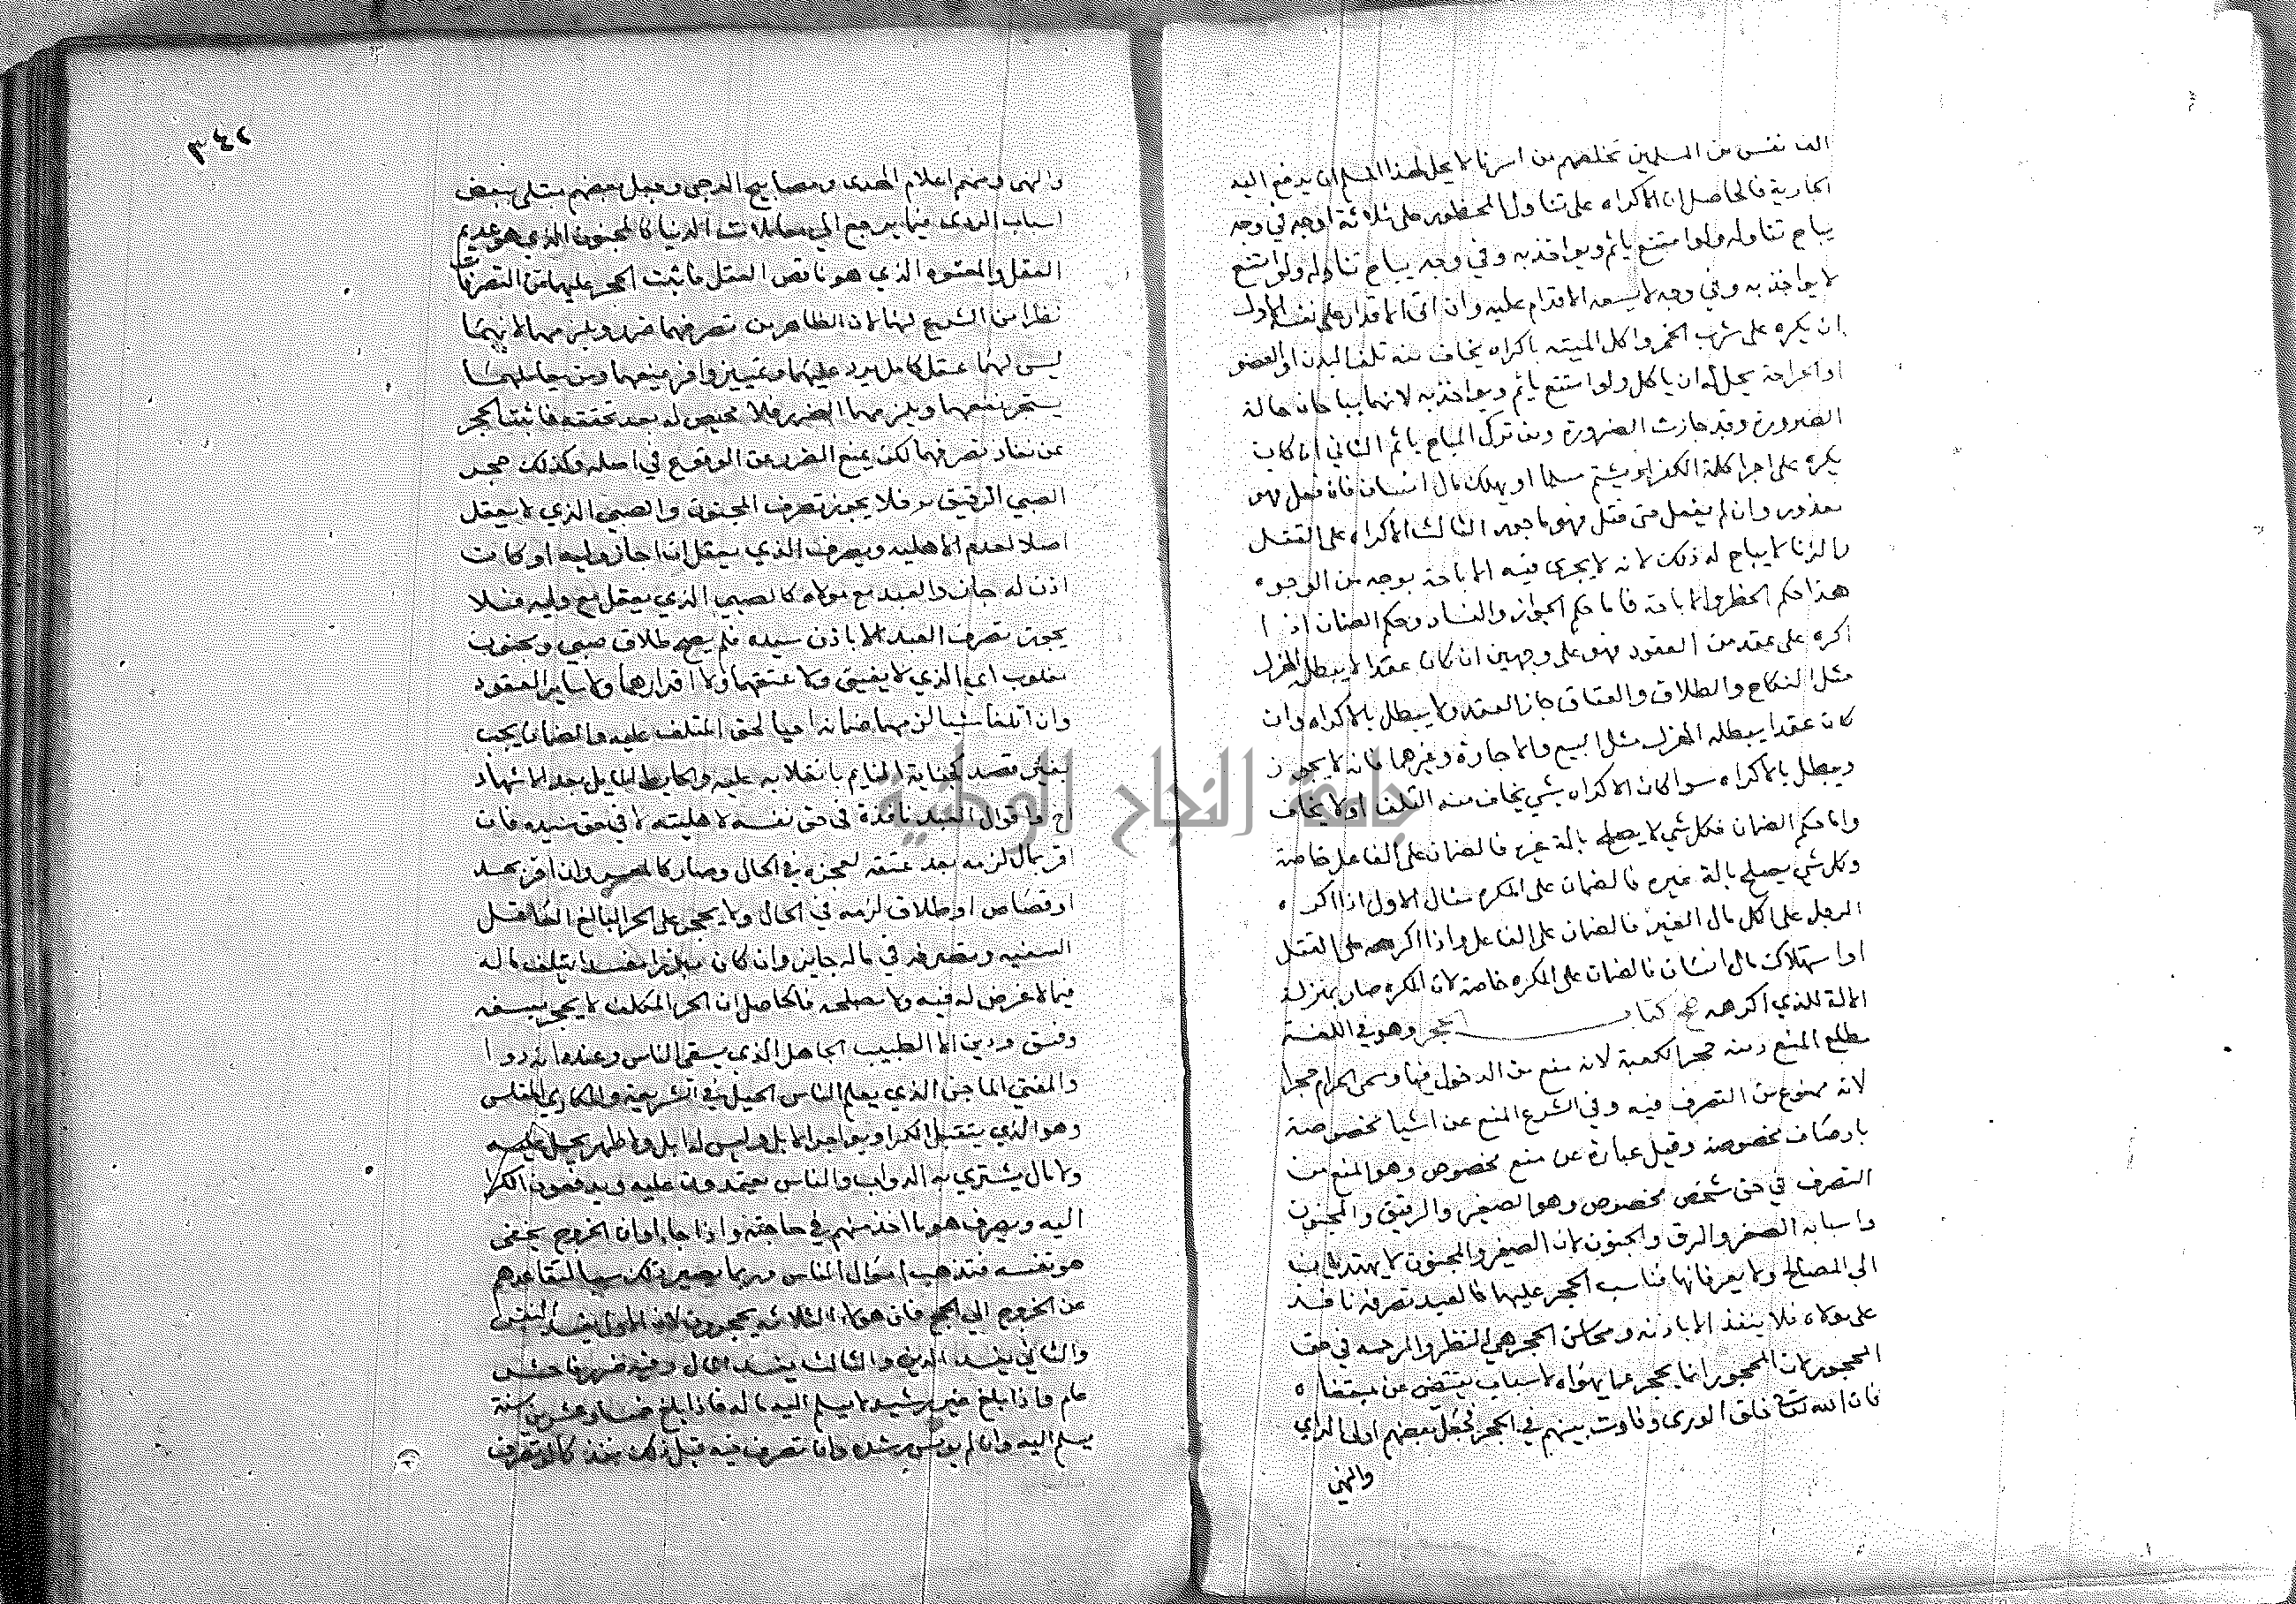 الف نفس من المسلمين تخلصهم من اسرنا لا يحل لهذا المسلم ان يدفع اليه
الجارية فالحاصل ان الاكراه على تناول المحظور على ثلاثة اوجه في وجه
يباح تناوله ولو امتنع ياثم ويواخذ به وفي وجه يباح تناوله ولو امتنع
لا يواخذ به وفي وجه لا يسعه الاقدام عليه وان اتى الاقدار على نفسه الاول
ان يكره على شرب الخمر واكل الميتة باكراه يخاف منه تلف البدن او العضو
او الجراحة يحل له ان ياكل ولو امتنع ياثم ويواخذ به لانهما يباحان حالة
الضرورة وقد جازت الضرورة ومن ترك المباح ياثم الثاني ان كان
يكره على اجرا كلمة الكفر او يشتم مسلما او يهلك مال انسان فان فعل فهو
معذور وان لم يفعل حتى قتل فهو ماجور الثالث الاكراه على القتل
والزنا لا يباح له ذلك لانه لا يجري فيه الاباحة بوجه من الوجوه
هذا حكم الحظر والاباحة فاما حكم الجواز والفساد وحكم الضمان اذا
اكره على عقد من العقود فهو على وجهين ان كان عقدا لا يبطله الهزل
مثل النكاح والطلاق والعتاق جاز العقد ولا يبطل بالاكراه وان
كان عقدا يبطله الهزل مثل البيع والاجارة وغيرهما فانه لا يجوز
ويبطل بالاكراه سوا كان الاكراه بشي يخاف منه التلف او لا يخاف
واما حكم الضمان فكل شي لا يصلح بالة غيره فالضمان على الفاعل خاصة
وكل شي يصلح بالة غيره فالضمان على المكره مثال الاول اذا اكره
الرجل على اكل مال الغير فالضمان على الفاعل واذا اكرهه على القتل
او استهلاك مال انسان فالضمان على المكره خاصة لان المكره صار بمنزلة
الالة للذي اكرهه كتاب الحجر وهو في اللغة
مطلع المنع ومنه حجر الكعبة لانه منع من الدخول فيها وسمى الحرام حجرا
لانه ممنوع من التصرف فيه وفي الشرع المنع عن اشيا مخصوصة
باوصاف مخصوصة وقيل عبارة عن منع مخصوص وهو المنع من
التصرف في حق شخص مخصوص وهو الصغير والرقيق والمجنون
واسبابه الصغر والرق والجنون لان الصغير والمجنون لا يهتديان
الي المصالح ولا يعرفانها فناسب الحجر عليهما والعبد تصرفه نافذ
على مولاه فلا ينفذ الا باذنه ومحاسن الحجر هي النظر والمرحمة في حق
المحجور لان المحجور انما يحجر عما يهواه لاسباب
فان الله تعالى خلق الورى وفاوت بينهم في الحجر فجعل بعضهم اولى الراي
والنهى
٣٤٢
والنهى ومنهم اعلام الهدى ومصابيح الدجى وجعل بعضهم مبتلى ببعض
اسباب الردى فيما يرجع الي معاملات الدنيا كالمجنون الذي هو عديم
العقل والمعتوه الذي هو ناقص العقل فاثبت الحجر عليهما عن التصرفات
نظرا من الشرع لهما لان الظاهر من تصرفهما ضرر يلزمهما لانهما
ليس لهما عقل كامل يرد عليهما وتمييز وافر يمنعهما ومن عاملهما
يستجر نفعهما ويلزمهما الضرر فلا محيص له بعد تحققه فاثبتنا الحجر
عن نفاذ تصرفهما لكن يمنع الضرر عن الوقوع في اصله وكذلك حجر
الصبي الرقيق فلا يجوز تصرف المجنون والصبي الذي لا يعقل
اصلا لعدم الاهلية ويصرف الذي يعقل ان اجاز وليه او كان
اذن له جاز والعبد مع مولاه كالصبي الذي يعقل مع وليه فلا
يجوز تصرف العبد الا باذن سيده فلم يصح طلاق صبي ومجنون
مغلوب اي الذي لا يفيق ولا عتقهما ولا اقرارهما ولا ساير العقود
وان اتلفا شيا لزمهما ضمانه احيا لحق المتلف عليه والضمان يجب
بغير قصد كجناية النايم بانقلابه عليه والحايط المايل بعد الاشهاد
اح واقوال العبد نافذة في حق نفسه لاهليته لا في حق سيده فان
اقر بمال لزمه بعد عتقه لعجزه في الحال وصار كالمعسر وان اقر بحد
او قصاص او طلاق لزمه في الحال ولا يحجر على الحر البالغ العاقل
السفيه وتصرفه في ماله جايز وان كان مبذرا مفسدا يتلف ماله
فيما لا غرض له فيه ولا مصلحة فالحاصل ان الحر المكلف لا يحجر بسفه
وفسق ودين الا الطبيب الجاهل الذي يسقي الناس وعنده انه دوا
والمفتي الماجن الذي يعلم الناس الحيل في الشريعة والمكاري المفلس
وهو الذي يتقبل الكرا ويواجر الابل وليس له ابل ولا ظهر يحمل عليه
ولا مال يشتري به الدواب والناس يعتمدون عليه ويدفعون الكرا
اليه ويصرف هو ما اخذ منهم في حاجته واذا جا اوان الخروج يخفي
هو نفسه فتذهب اموال الناس وربما يصير ذلك سببا لتقاعدهم
عن الخروج الي الحج فان هولاء الثلاثة يحجرون لان الاول يفسد النفس
والثاني يفسد الدين والثالث يفسد المال وفيه ضرر فاحش
عام واذا بلغ غير رشيد لا يسلم اليه ماله فاذا بلغ خمسا وعشرين سنة
يسلم اليه وان لم يونس رشده وان تصرف فيه قبل ذلك نفذ
جامعة النجاح الوطنية